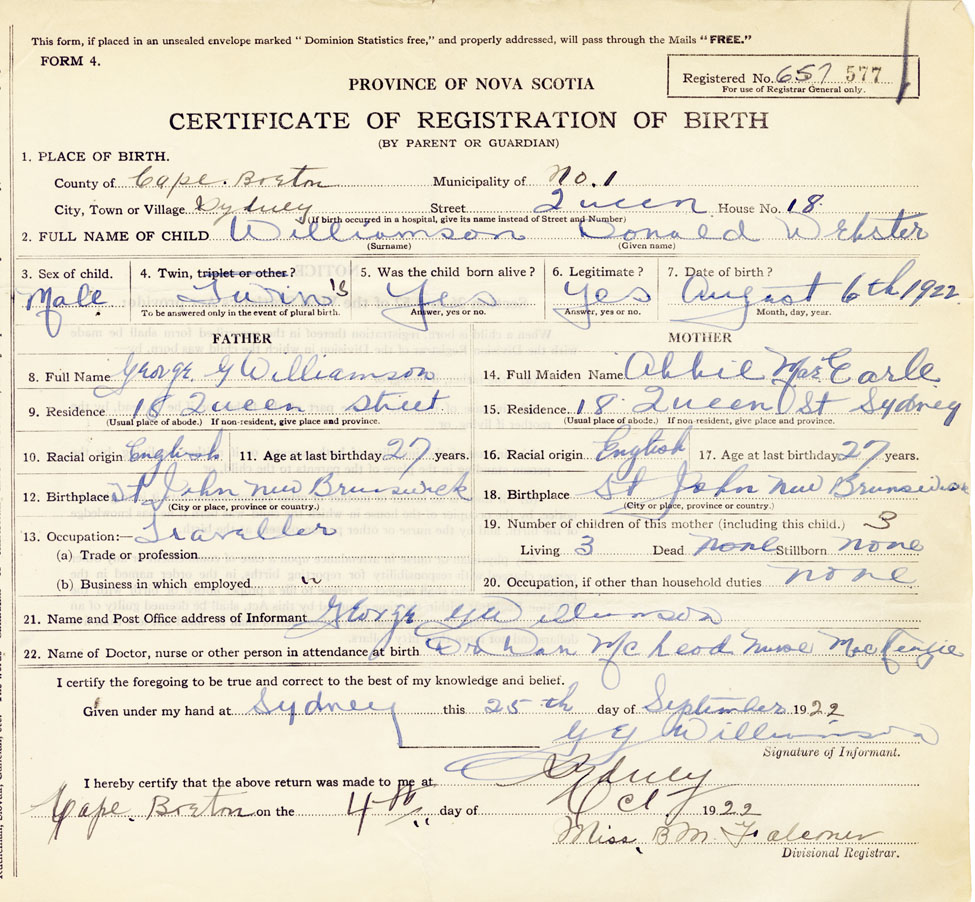 This form, if placed in an unsealed envelope marked " Dominion Statistics free," and properly addressed, will pass through the Mails "FREE."
FORM 4.
PROVINCE OF NOVA SCOTIA
Registered No. 657 577
For use of Registrar General only.
CERTIFICATE OF REGISTRATION OF BIRTH
(BY PARENT OR GUARDIAN)
1. PLACE OF BIRTH.
County of Cape Breton Municipality of No. 1
City, Town or Village Sydney Street Queen House No. 18
(If birth occurred in a hospital, give its name instead of Street and Number)
2. FULL NAME OF CHILD Williamson Donald Webster
(Surname) (Given name)
3. Sex of child. 4. Twin, triplet or other? 5. Was the child born alive? 6. Legitimate? 7. Date of birth?
Male Twin's Yes Yes August 6th 1922
To be answered only in the event of plural birth. Answer, yes or no. Answer, yes or no. Month, day, year.
FATHER MOTHER
8. Full Name George G Williamson 14. Full Maiden Name Abbie Mae Earle
9. Residence 18 Queen Street 15. Residence 18 Queen St Sydney
(Usual place of abode.) If non-resident, give place and province. (Usual place of abode.) If non-resident, give place and province.
10. Racial origin English 11. Age at last birthday 27 years. 16. Racial origin English 17. Age at last birthday 27 years.
12. Birthplace St John New Brunswick 18. Birthplace St John New Brunswick
(City or place, province or country.) (City or place, province or country.)
13. Occupation:— Traveller 19. Number of children of this mother (including this child.) 3
(a) Trade or profession Living 3 Dead none Stillborn none
(b) Business in which employed " 20. Occupation, if other than household duties none
21. Name and Post Office address of Informant George G Williamson
22. Name of Doctor, nurse or other person in attendance at birth Dr Dan McLeod Nurse MacKenzie
I certify the foregoing to be true and correct to the best of my knowledge and belief.
Given under my hand at Sydney this 25th day of September 1922
G G Williamson
Signature of Informant.
I hereby certify that the above return was made to me at Sydney
Cape Breton on the 4th day of Oct 1922
Miss B M Falconer
Divisional Registrar.